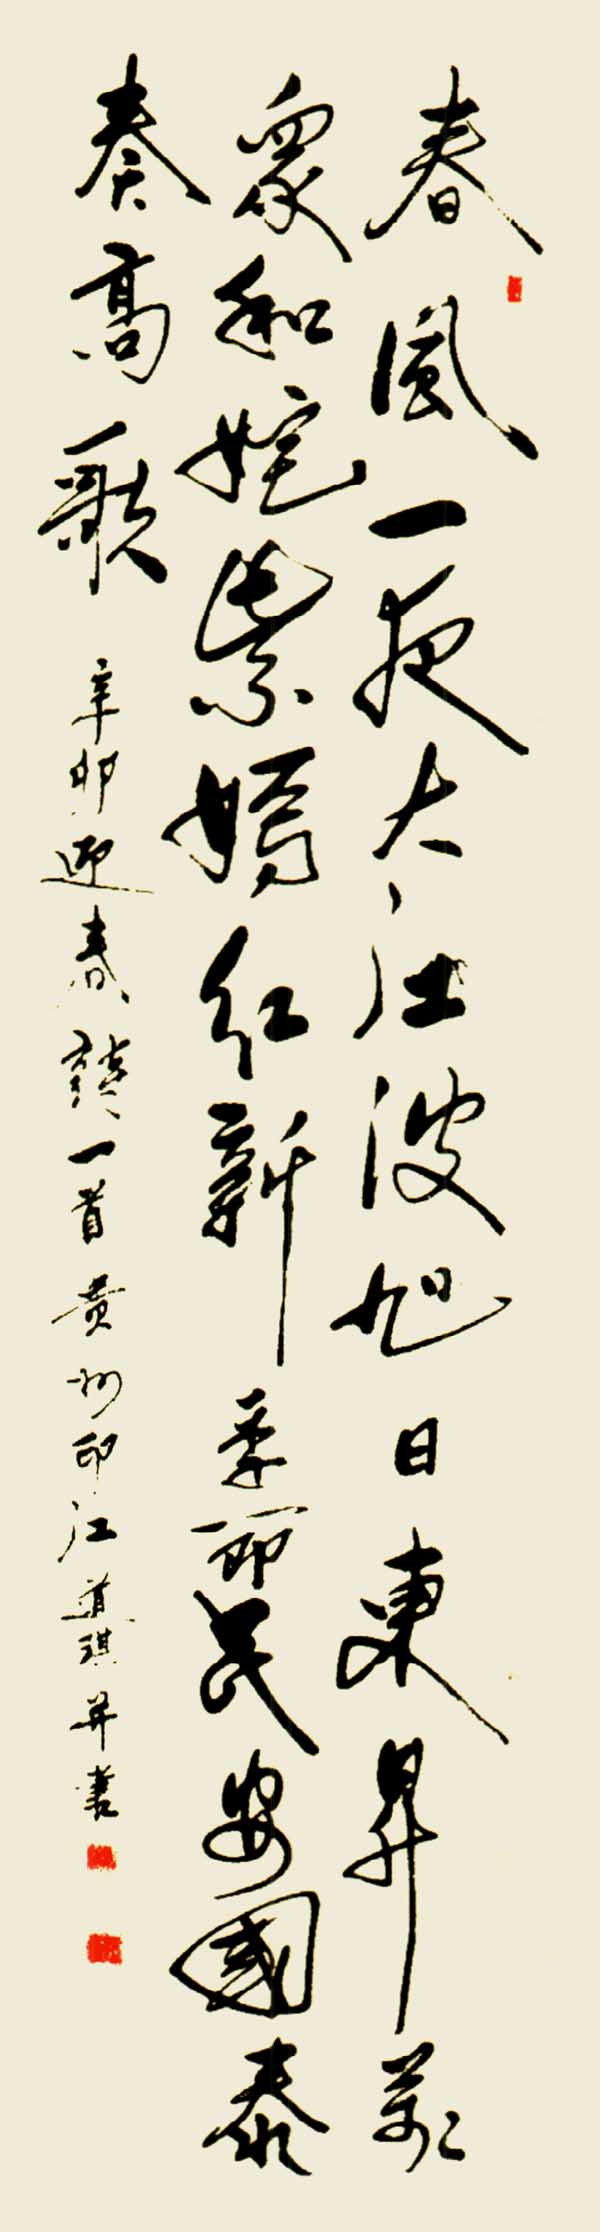 春風一夜大江波旭日東昇萬
眾和姹紫嫣紅新季節民安國泰
奏高歌
辛卯迎春讀一首黄州印江道琪并書